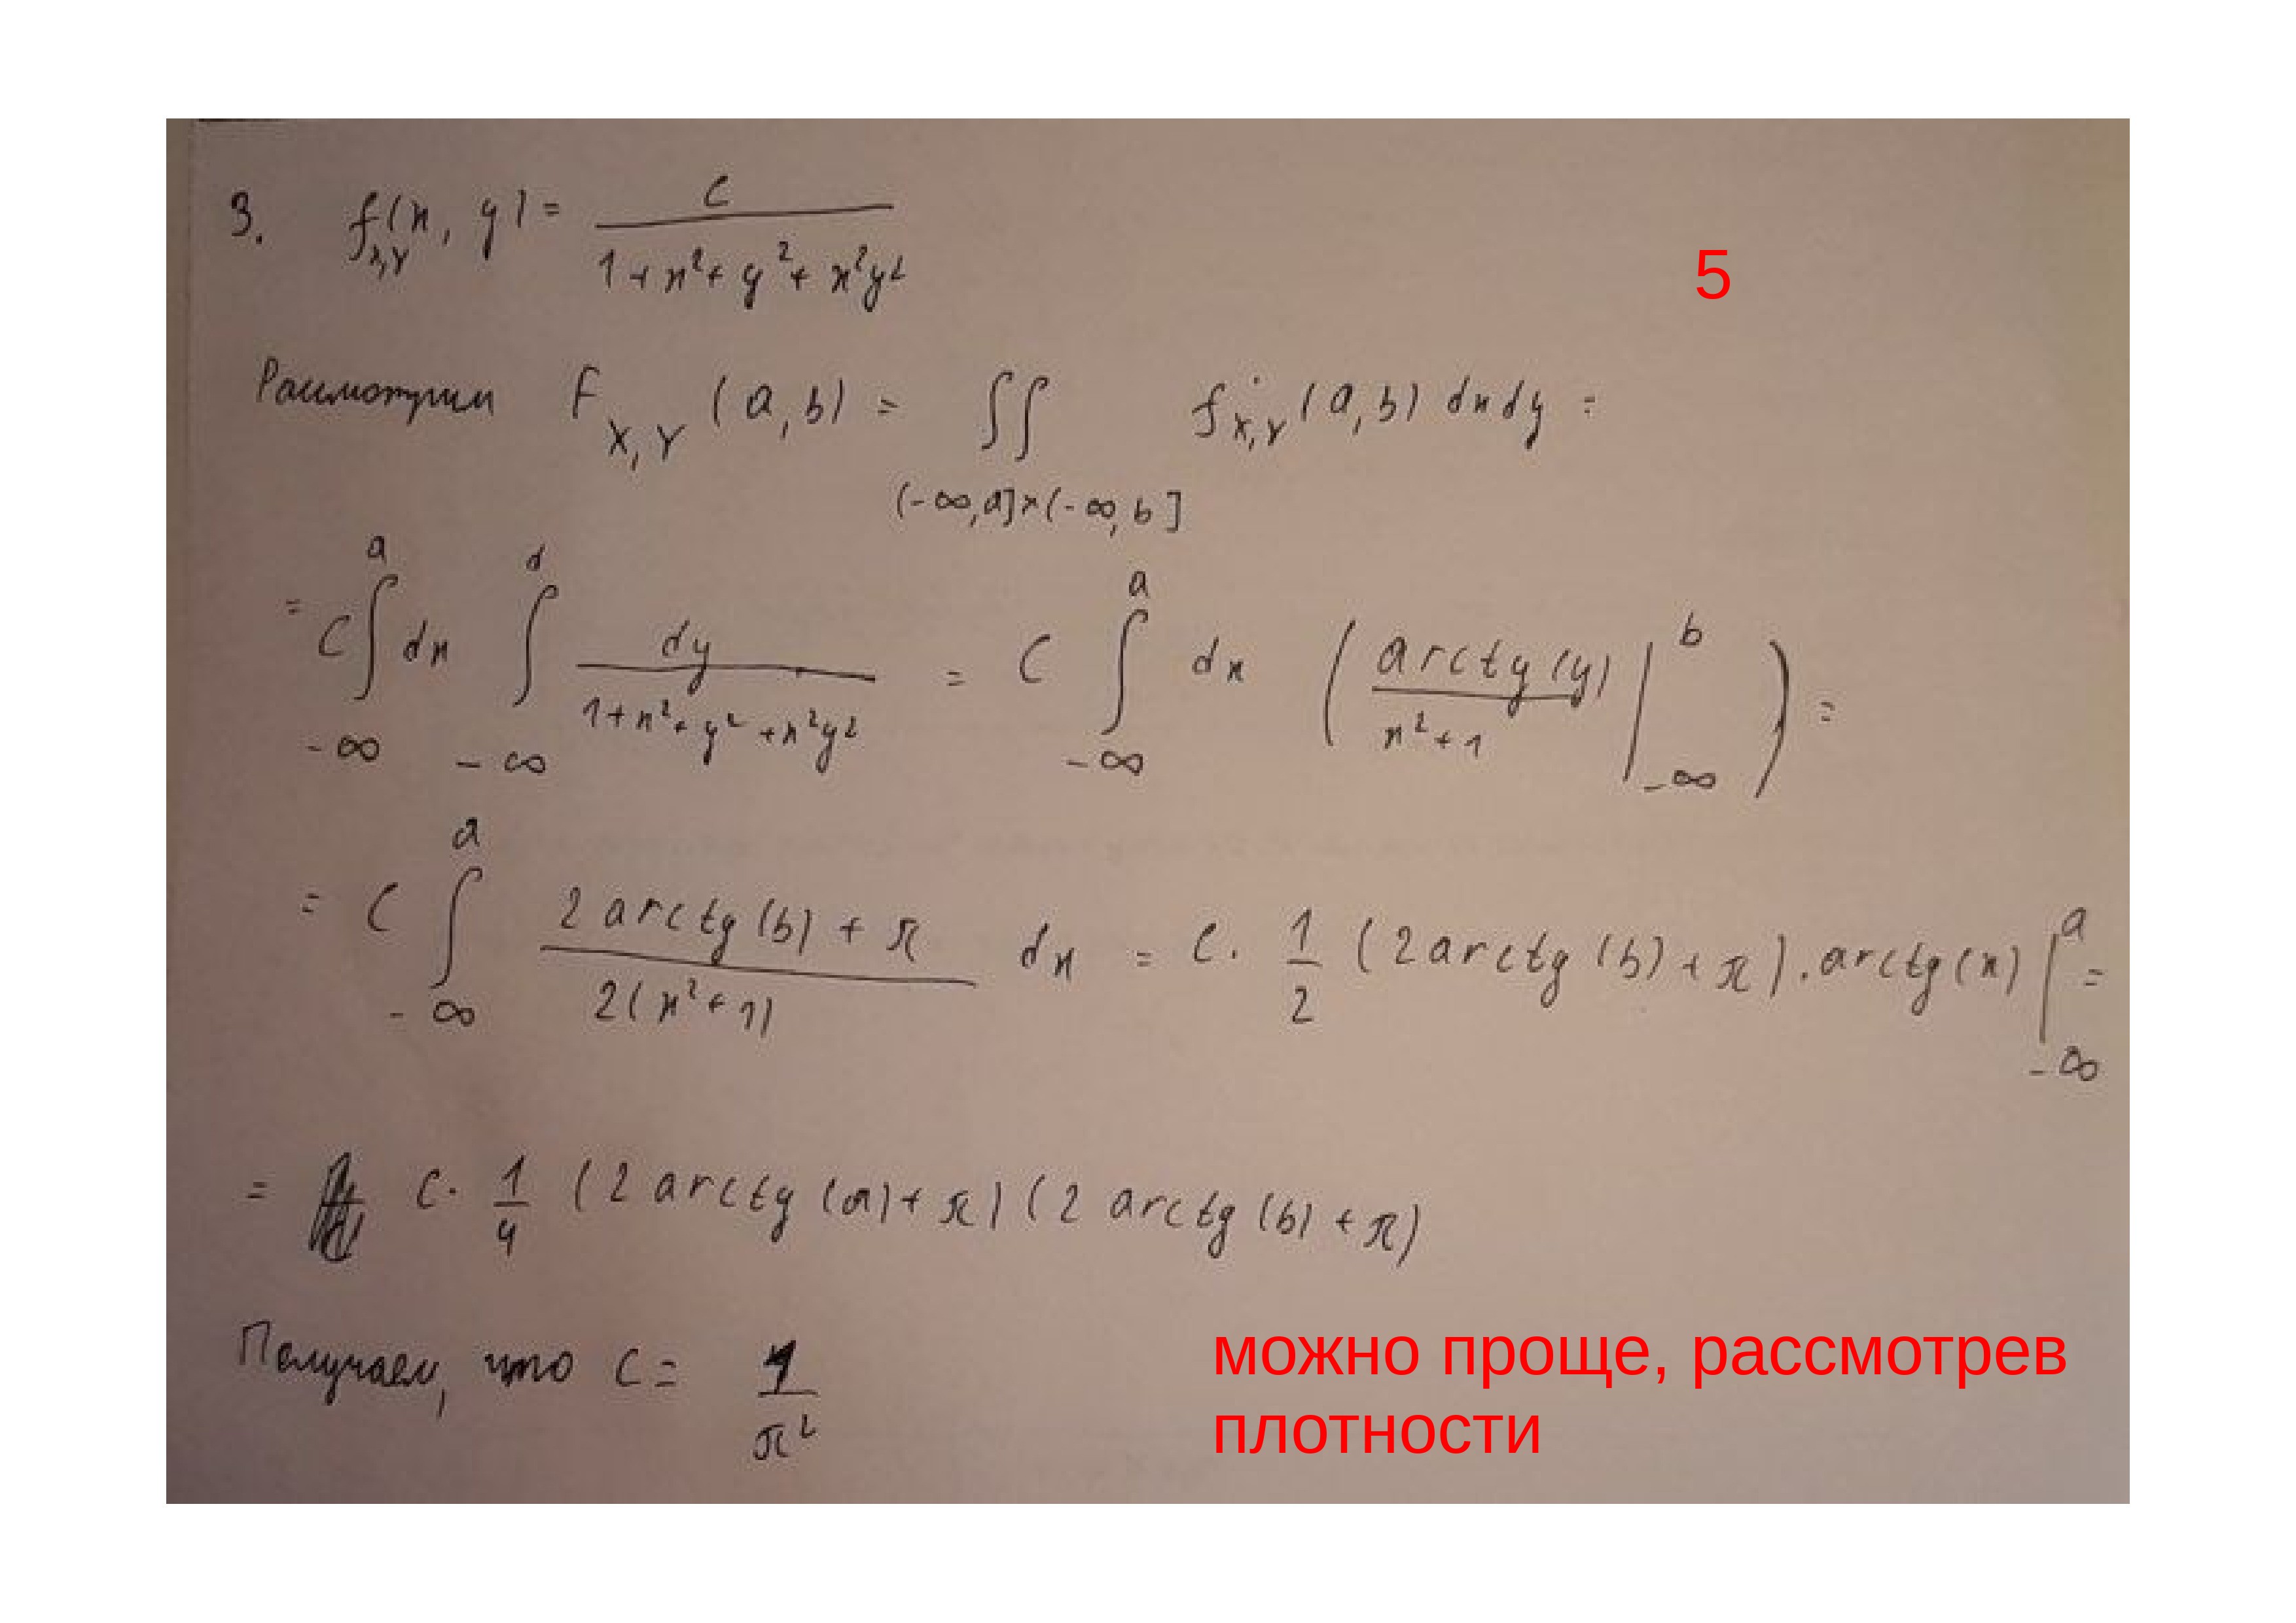 3. f_{X,Y}(x, y) = \frac{C}{1+x^2+y^2+x^2y^2}
5
Рассмотрим F_{X,Y}(a,b) = \iint_{(-∞,a]×(-∞,b]} f_{X,Y}(a,b) dx dy =
= C \int_{-∞}^{a} dx \int_{-∞}^{d} \frac{dy}{1+x^2+y^2+x^2y^2} = C \int_{-∞}^{a} dx ( \frac{arctg(y)}{x^2+1} |_{-∞}^{b} ) =
= C \int_{-∞}^{a} \frac{2 arctg(b) + π}{2(x^2+1)} dx = C · \frac{1}{2} (2 arctg(b) + π) · arctg(x) |_{-∞}^{a} =
= C · \frac{1}{4} (2 arctg(a) + π)(2 arctg(b) + π)
Получаем, что C = \frac{1}{π^2}
можно проще, рассмотрев
плотности